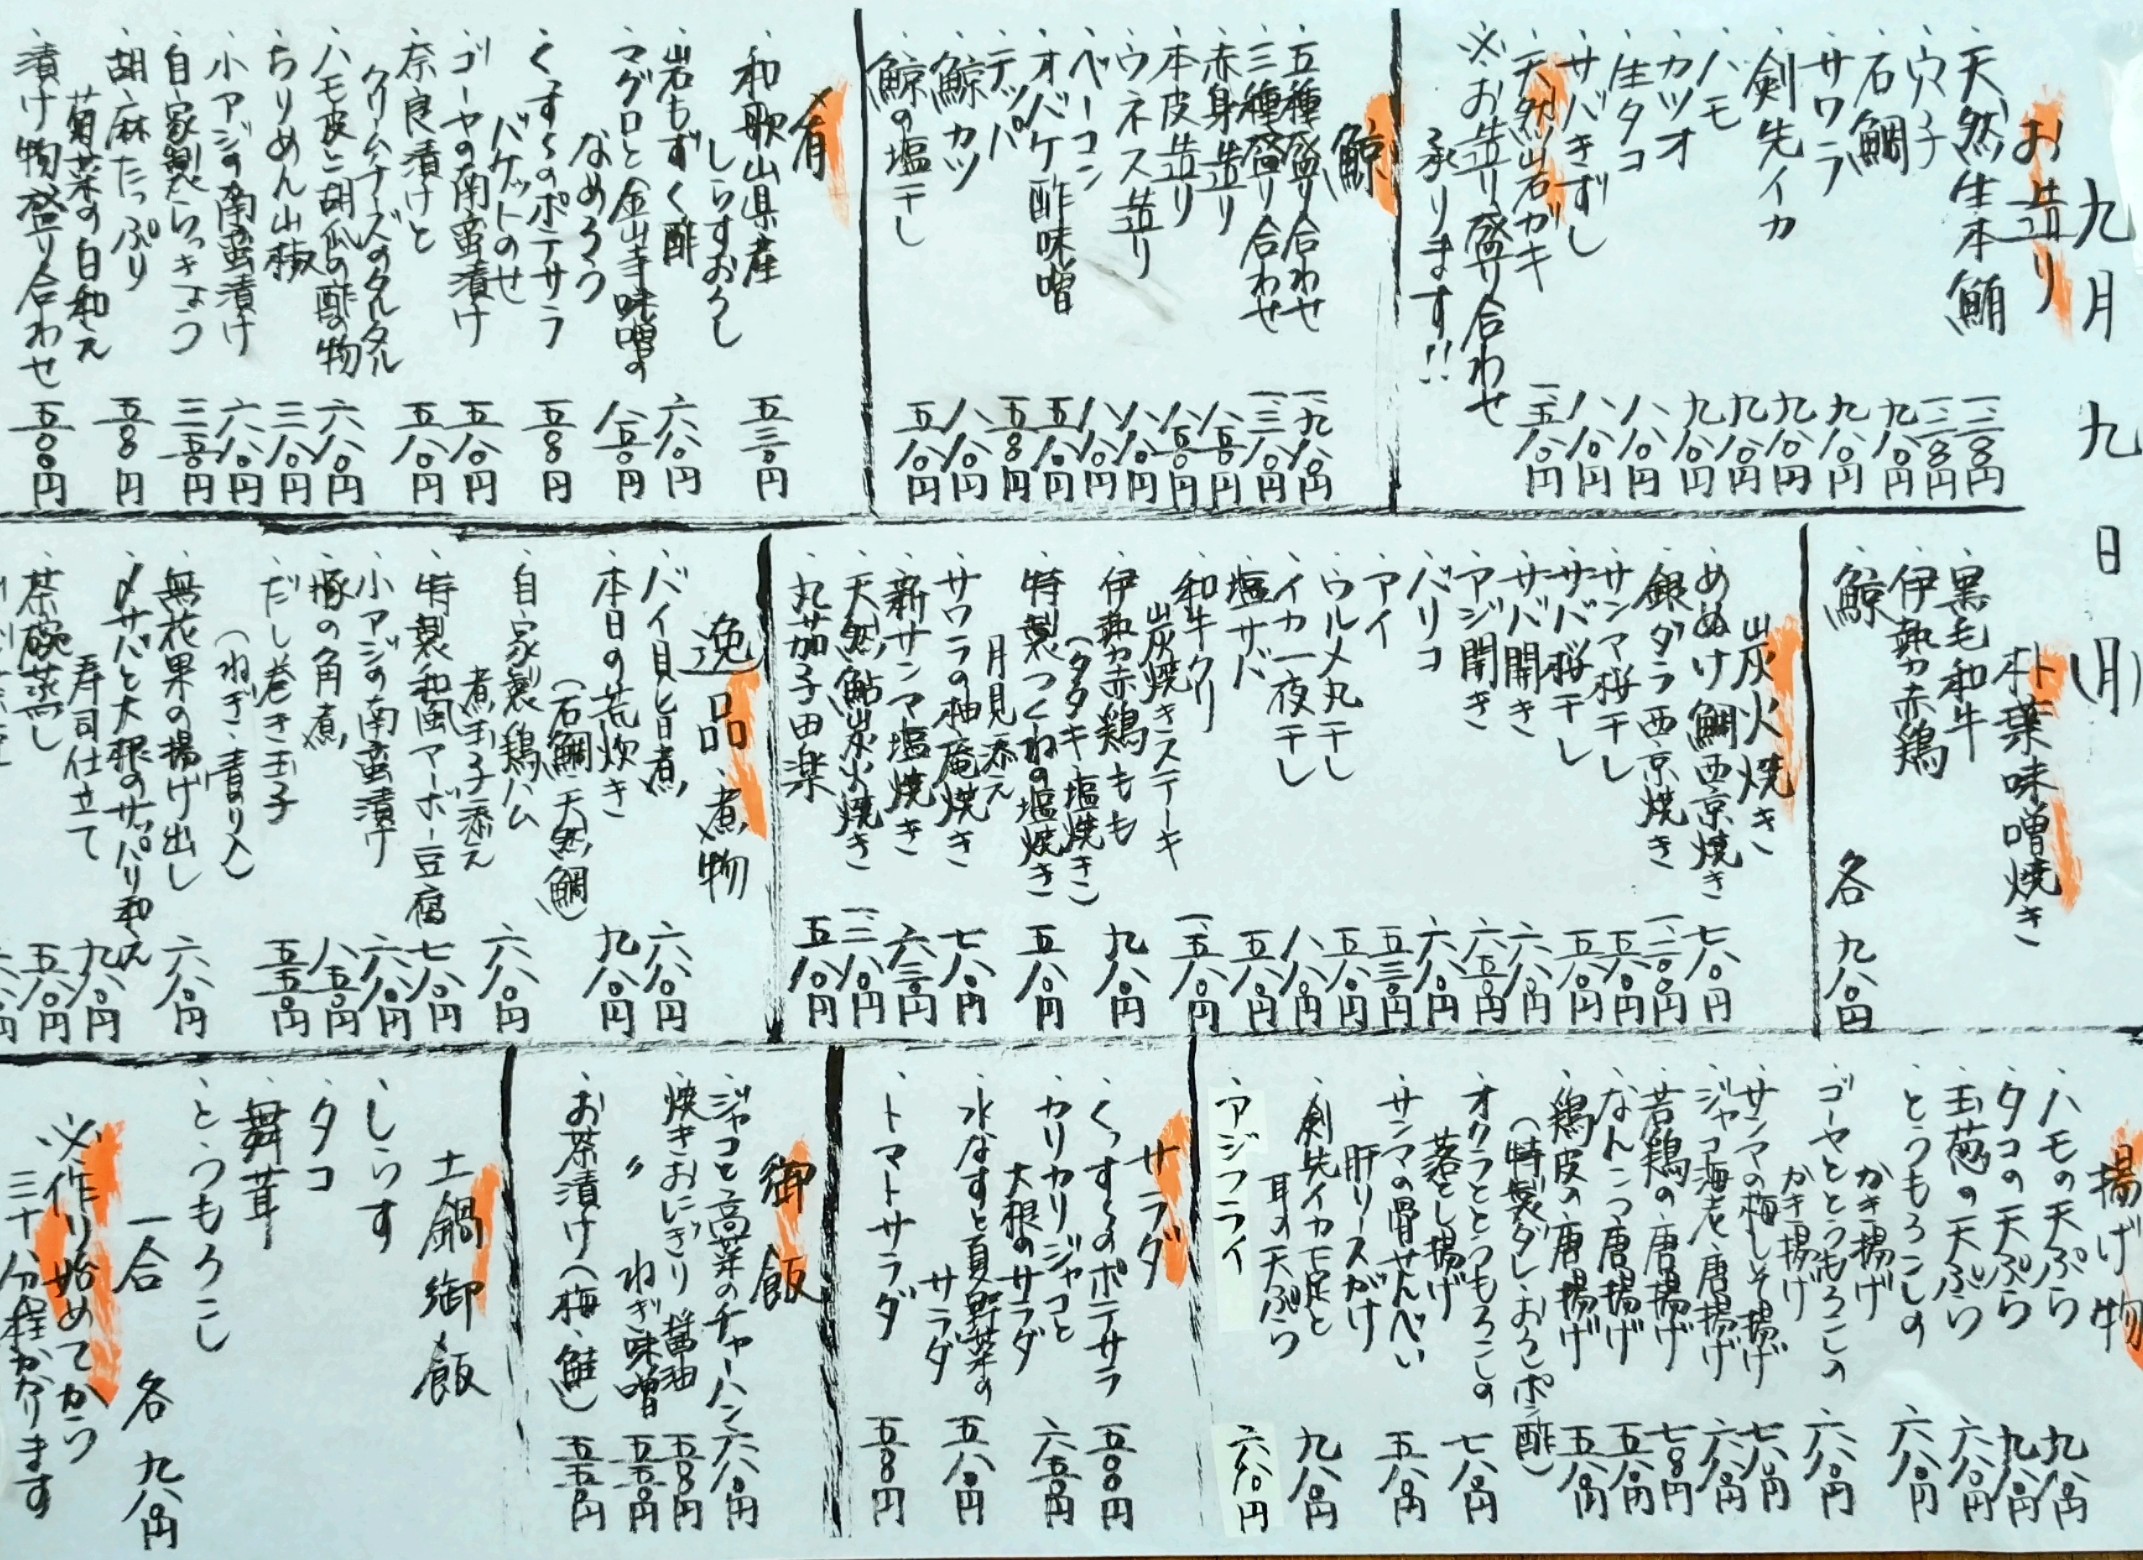 九月九日(月)
お造り
、天然生本鮪
、穴子
、石鯛 九八〇円
、サワラ 九八〇円
、剣先イカ 九八〇円
、ハモ 九八〇円
、カツオ 九八〇円
、生タコ 八八〇円
、サバきずし 八八〇円
、天然岩ガキ 一五八〇円
※お造り盛り合わせ
承ります!!
鯨
、五種盛り合わせ 一九八〇円
、三種盛り合わせ 一三八〇円
、赤身造り 八五〇円
、本皮造り 八五〇円
、ウネス造り 八八〇円
、ベーコン 八八〇円
、オバケ酢味噌 五八〇円
、テッパ
、鯨カツ 八八〇円
、鯨の塩干し 五八〇円
肴
、和歌山県産
しらすおろし 五三〇円
、岩もずく酢 六八〇円
、マグロと金山寺味噌の
なめろう 八五〇円
、くずしのポテサラ
バケットのせ 五〇〇円
、ゴーヤの南蛮漬け 五八〇円
、奈良漬けと
クリームチーズのタルタル 五八〇円
、ハモ皮と胡瓜の酢の物 六八〇円
、ちりめん山椒 三八〇円
、小アジの南蛮漬け 六八〇円
、自家製らっきょう 三五〇円
、胡麻たっぷり
菊菜の白和え 五〇〇円
、漬け物盛り合わせ 五〇〇円
朴葉味噌焼き
、黒毛和牛
、伊勢赤鶏
、鯨
各 九八〇円
炭火焼き
、めぬけ鯛西京焼き 七八〇円
、銀ダラ西京焼き
、サンマ桜干し 五八〇円
、サバ桜干し 五八〇円
、サバ開き 六八〇円
、アジ開き 六五〇円
、バリコ 六八〇円
、アイ 五三〇円
、ウルメ丸干し 五八〇円
、イカ一夜干し 八八〇円
、塩サバ 五八〇円
、和牛クリ
炭焼きステーキ 一五八〇円
、伊勢赤鶏もも
(タタキ・塩焼き) 九八〇円
、特製つくねの塩焼き
月見添え 五八〇円
、サワラの柚庵焼き 七八〇円
、新サンマ塩焼き 六三〇円
、天然鮎炭火焼き 一三八〇円
、丸茄子田楽 五八〇円
逸品、煮物
、バイ貝旨煮 六八〇円
、本日の荒炊き
(石鯛、天然鯛) 九八〇円
、自家製鶏ハム
煮玉子添え 六八〇円
、特製和風マーボー豆腐 七八〇円
、小アジの南蛮漬け 六八〇円
、豚の角煮 八五〇円
、だし巻き玉子
(ねぎ・青のり入) 五五〇円
、無花果の揚げ出し 六八〇円
、〆サバと大根のサッパリ和え
寿司仕立て 九八〇円
、茶碗蒸し 五八〇円
揚げ物
、ハモの天ぷら 九八〇円
、タコの天ぷら 九八〇円
、玉葱の天ぷら 六八〇円
、とうもろこしの
かき揚げ 六八〇円
、ゴーヤととうもろこしの
かき揚げ 六八〇円
、サンマの梅しそ揚げ 七八〇円
、ジャコ海老唐揚げ 六八〇円
、若鶏の唐揚げ 七〇〇円
、なんこつ唐揚げ 五八〇円
、鶏皮の唐揚げ
(特製ダレ・おろしポン酢) 五八〇円
、オクラととうもろこしの
落とし揚げ 七八〇円
、サンマの骨せんべい
肝リースがけ 五八〇円
、剣先イカ下足と
耳の天ぷら 九八〇円
、アジフライ 六八〇円
サラダ
、くずしのポテサラ 五〇〇円
、カリカリジャコと
大根のサラダ 六五〇円
、水なすと夏野菜の
サラダ 五八〇円
、トマトサラダ 五〇〇円
御飯
、ジャコと高菜のチャーハン 六八〇円
、焼きおにぎり 醤油 五〇〇円
〃 ねぎ味噌 五五〇円
、お茶漬け(梅、鮭) 五五〇円
土鍋御飯
、しらす
、タコ
、舞茸
、とうもろこし
一合 各 九八〇円
※作り始めてから
三十分程かかります